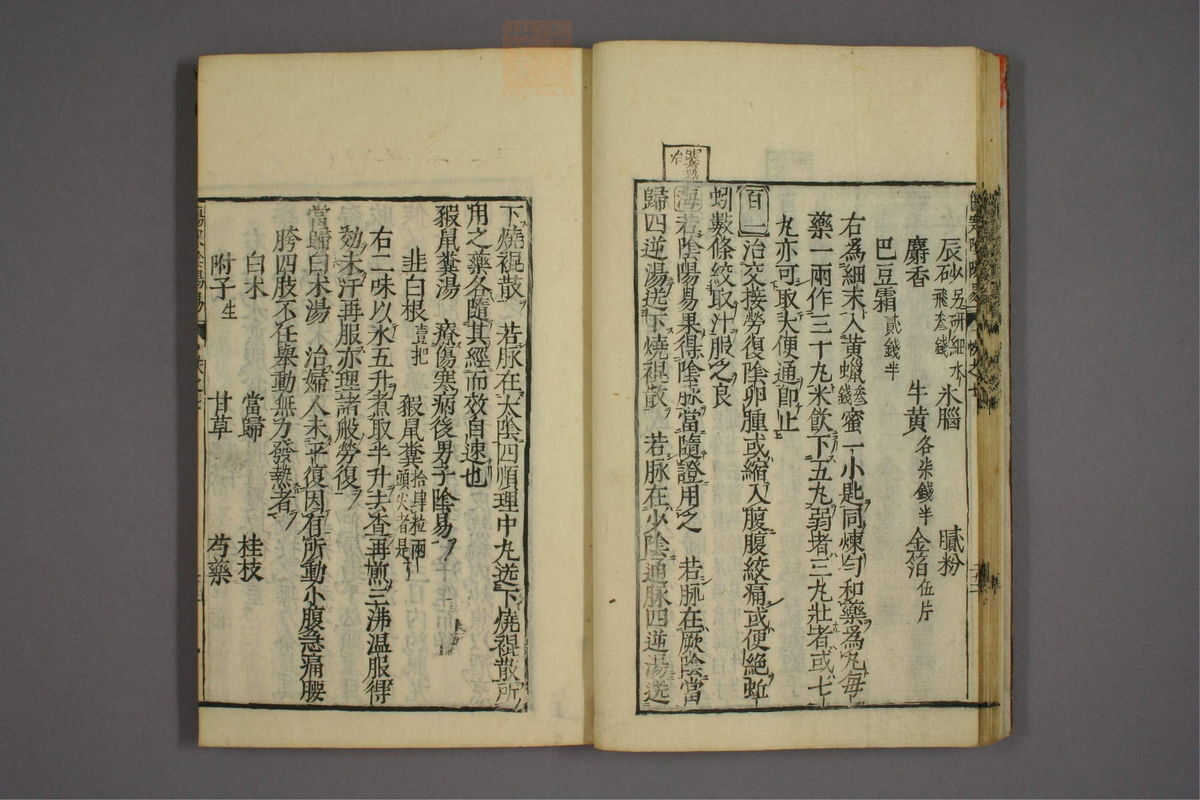 辰砂另研細水飛叁錢　氷腦　膩粉
麝香　牛黄各柒錢半　金箔伍片
巴豆霜貳錢半
右為細末入黄蠟叁錢蜜一小匙同煉匀和藥為丸毎
藥一兩作三十丸米飲下五丸弱者三丸壯者或七
丸亦可取大便通即止
百一治交接勞復陰卵腫或縮入腹腹絞痛或便絶蚯
蚓數條絞取汁服之良
海若陰陽易果得陰脉當隨證用之　若脉在厥陰當
歸四逆湯送下燒裩散　若脉在少陰通脉四逆湯送
下燒裩散　若脉在太陰四順理中丸送下燒裩散所
用之藥各隨其經而效自速也
豭鼠糞湯　療傷寒病後男子陰易
韭白根壹把　豭鼠糞拾肆粒兩頭尖者是
右二味以水五升煮取半升去查再煎三沸温服得
効未汗再服亦理諸般勞復
當歸白朮湯　治婦人未平復因有所動小腹急痛腰
胯四肢不任舉動無力發熱者
白朮　當歸　桂枝
附子生　甘草　芍藥